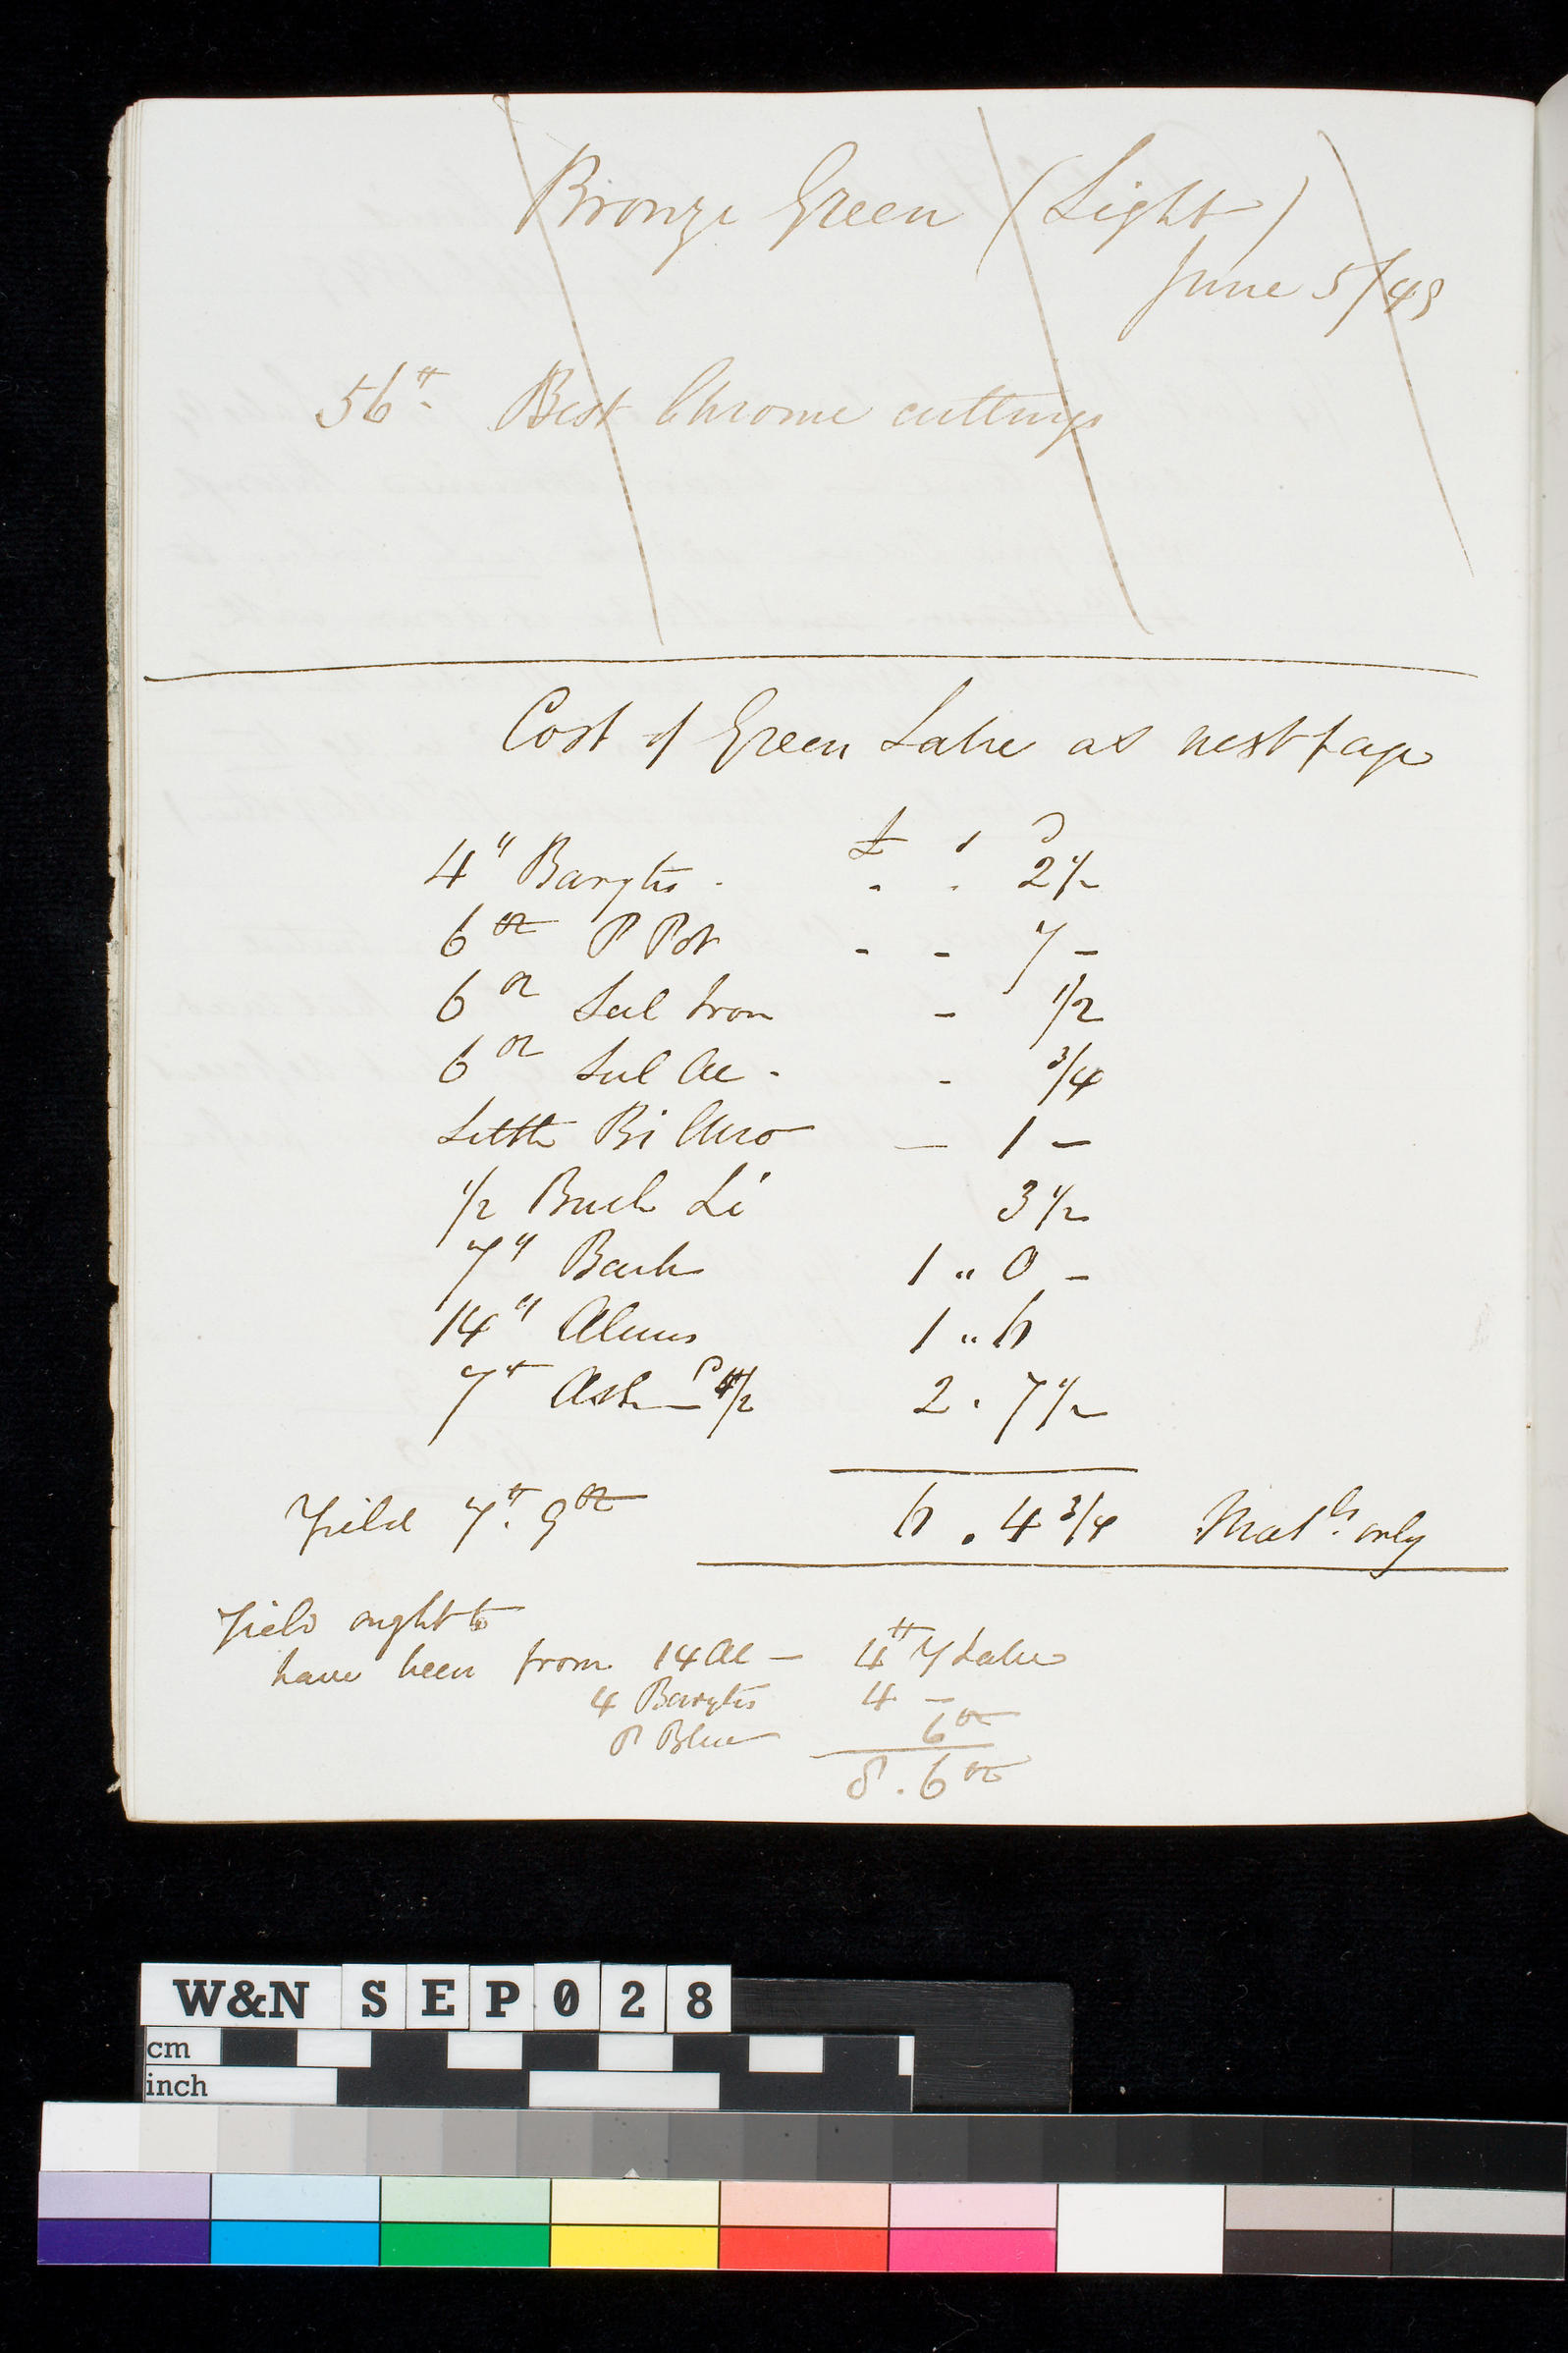 Bronze Green (Light)
June 5/49
56lb. Best Chrome cuttings
Cost of Green Lake as next page
£ s d
4" Barytes . . . 2 1/2
6 oz P Pot - - 7 -
6 oz Sul Iron - 1/2
6 oz Sul Ac - - 3/4
Little Bi Chro - 1 -
1/2 Bush Li 3 1/2
7" Bark 1 " 0 -
14" Alum 1 " 2
7" Ash 4 1/2 2 . 7 1/2
Yield 7lb. 9oz 5 . 4 3/4 Matls. only
Yield ought to
have been from 14 Al - 4lb Y Lake
4 Barytes 4 -
P Blue 6oz
8 . 6oz
W&N SEP028
cm
inch